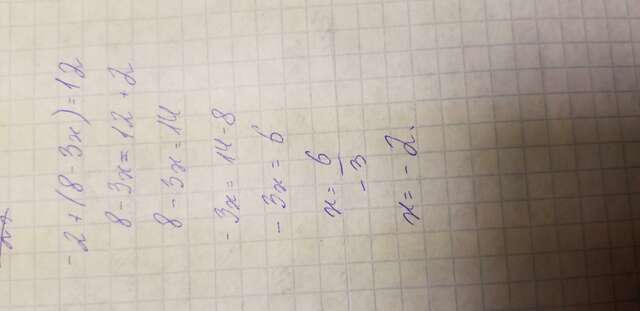 -2+(8-3x)=12
8-3x=12+2
8-3x=14
-3x=14-8
-3x=6
x=6/-3
x=-2.